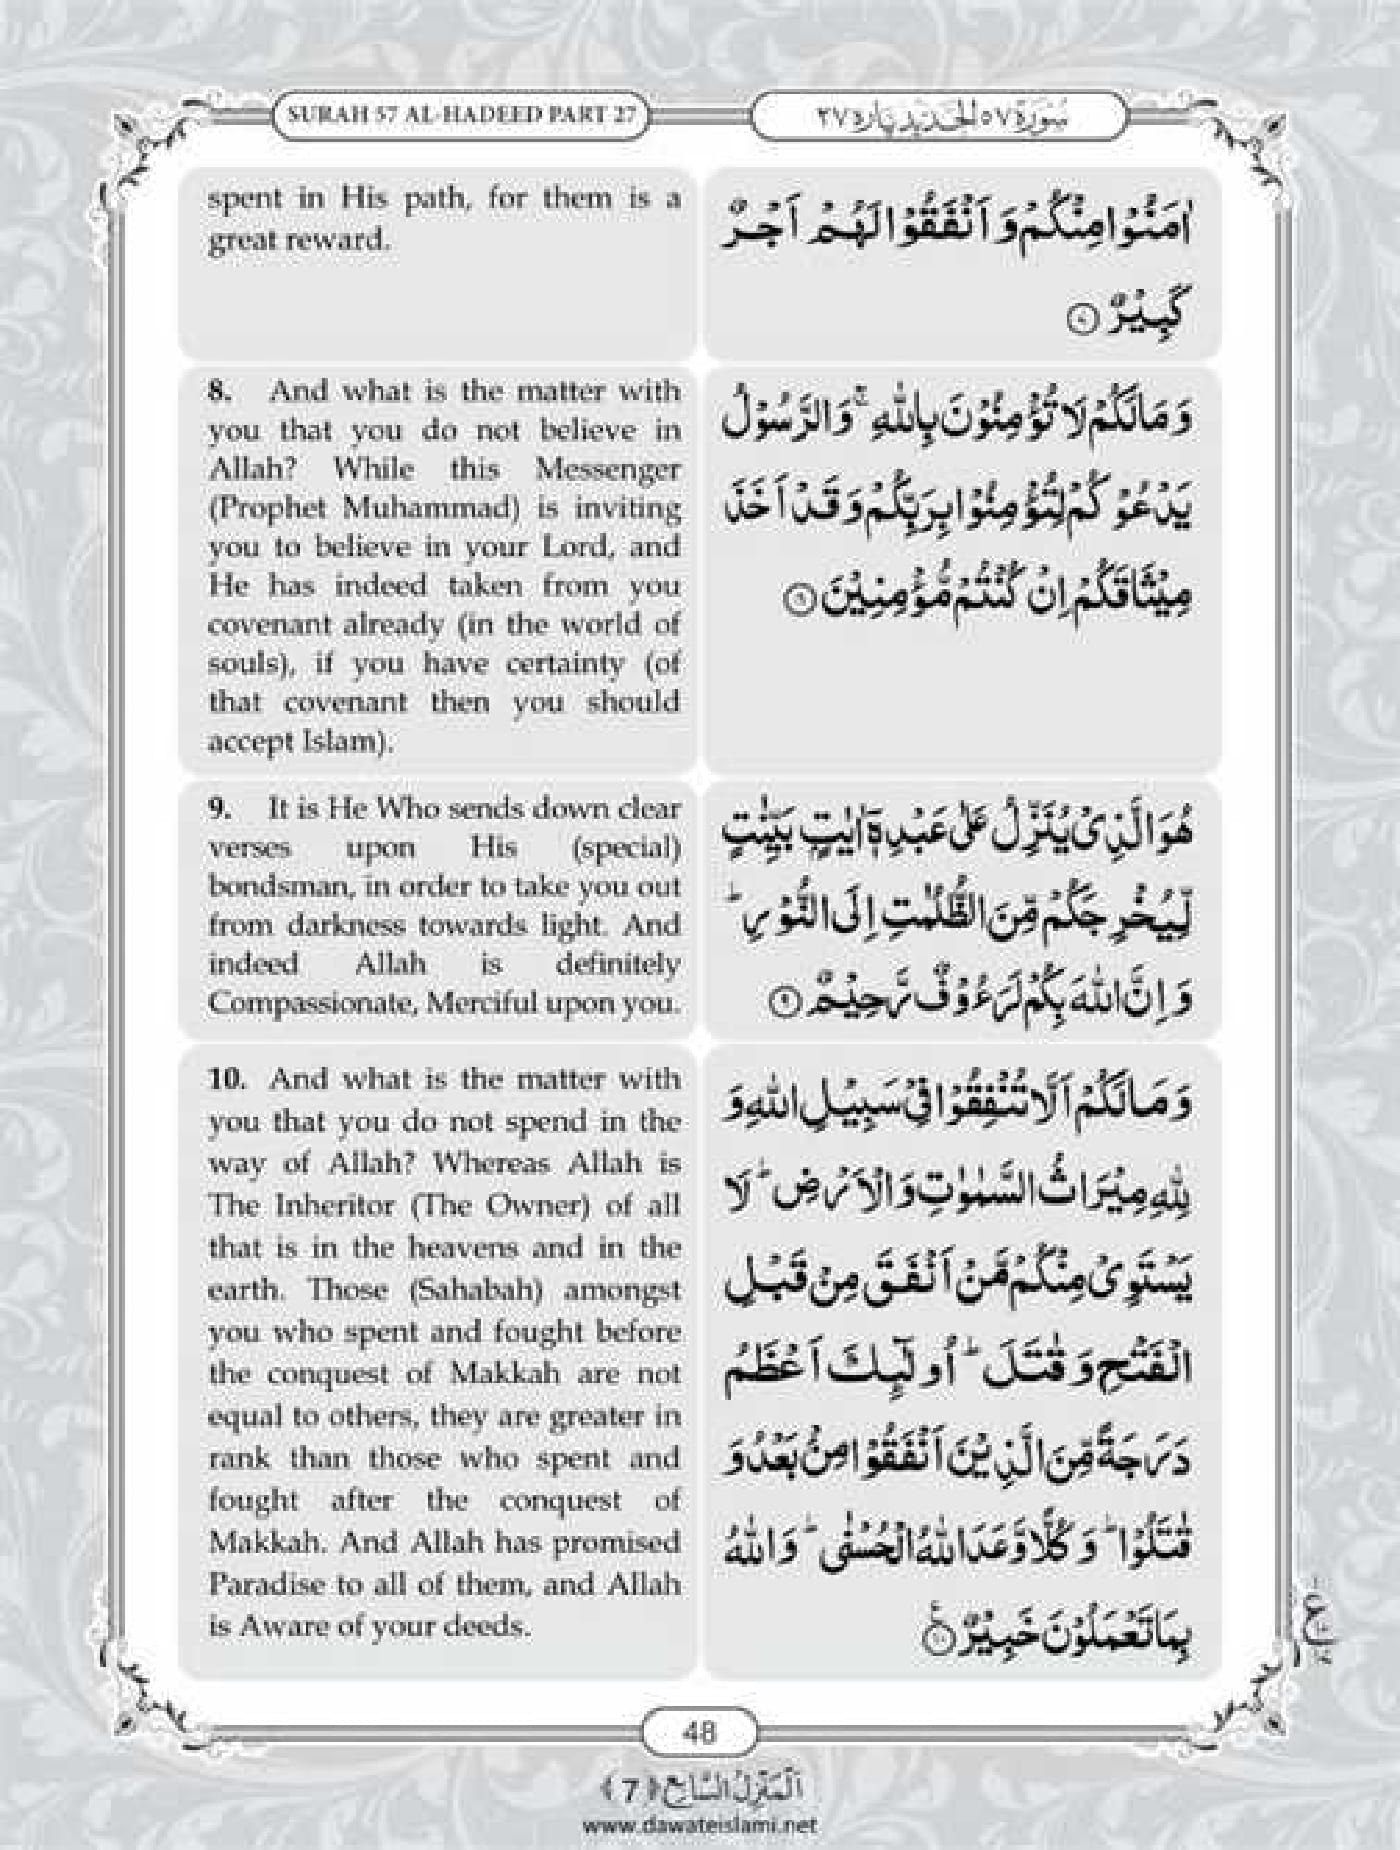 SURAH 57 AL-HADEED PART 27
سُوْرَةُ ٥٧ الْحَدِيْد پاره ٢٧
spent in His path, for them is a
great reward.
اٰمَنُوْا مِنْكُمْ وَ اَنْفَقُوْا لَهُمْ اَجْرٌ
كَبِيْرٌ
8. And what is the matter with
you that you do not believe in
Allah? While this Messenger
(Prophet Muhammad) is inviting
you to believe in your Lord, and
He has indeed taken from you
covenant already (in the world of
souls), if you have certainty (of
that covenant then you should
accept Islam).
وَ مَا لَكُمْ لَا تُؤْمِنُوْنَ بِاللّٰهِ ۚ وَ الرَّسُوْلُ
يَدْعُوْكُمْ لِتُؤْمِنُوْا بِرَبِّكُمْ وَ قَدْ اَخَذَ
مِيْثَاقَكُمْ اِنْ كُنْتُمْ مُّؤْمِنِيْنَ
9. It is He Who sends down clear
verses upon His (special)
bondsman, in order to take you out
from darkness towards light. And
indeed Allah is definitely
Compassionate, Merciful upon you.
هُوَ الَّذِيْ يُنَزِّلُ عَلٰى عَبْدِهٖۤ اٰيٰتٍۭ بَيِّنٰتٍ
لِّيُخْرِجَكُمْ مِّنَ الظُّلُمٰتِ اِلَى النُّوْرِ ؕ
وَ اِنَّ اللّٰهَ بِكُمْ لَرَءُوْفٌ رَّحِيْمٌ ﴿۹﴾
10. And what is the matter with
you that you do not spend in the
way of Allah? Whereas Allah is
The Inheritor (The Owner) of all
that is in the heavens and in the
earth. Those (Sahabah) amongst
you who spent and fought before
the conquest of Makkah are not
equal to others, they are greater in
rank than those who spent and
fought after the conquest of
Makkah. And Allah has promised
Paradise to all of them, and Allah
is Aware of your deeds.
وَ مَا لَكُمْ اَلَّا تُنْفِقُوْا فِيْ سَبِيْلِ اللّٰهِ وَ
لِلّٰهِ مِيْرَاثُ السَّمٰوٰتِ وَ الْاَرْضِ ؕ لَا
يَسْتَوِيْ مِنْكُمْ مَّنْ اَنْفَقَ مِنْ قَبْلِ
الْفَتْحِ وَ قٰتَلَ ؕ اُولٰٓئِكَ اَعْظَمُ
دَرَجَةً مِّنَ الَّذِيْنَ اَنْفَقُوْا مِنْۢ بَعْدُ وَ
قٰتَلُوْا ؕ وَ كُلًّا وَّعَدَ اللّٰهُ الْحُسْنٰى ؕ وَ اللّٰهُ
بِمَا تَعْمَلُوْنَ خَبِيْرٌ ﴿۱۰﴾
48
اَلْمَنْزِلُ السَّابِع ﴿7﴾
www.dawateislami.net